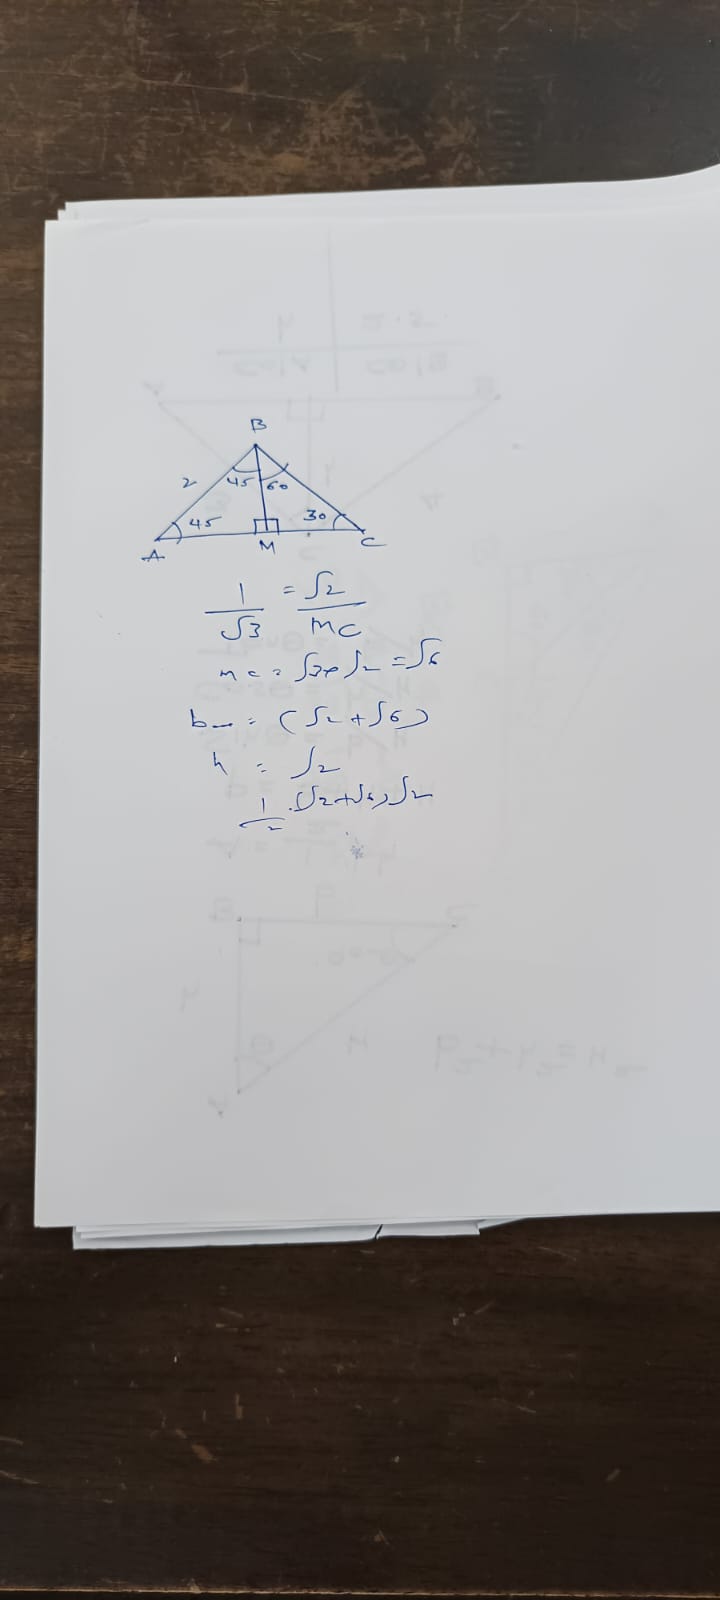 B
2 45 60
45 30
A M C
1/√3 = √2/MC
MC = √3×√2 = √6
b = (√2+√6)
h = √2
1/2 · (√2+√6)√2